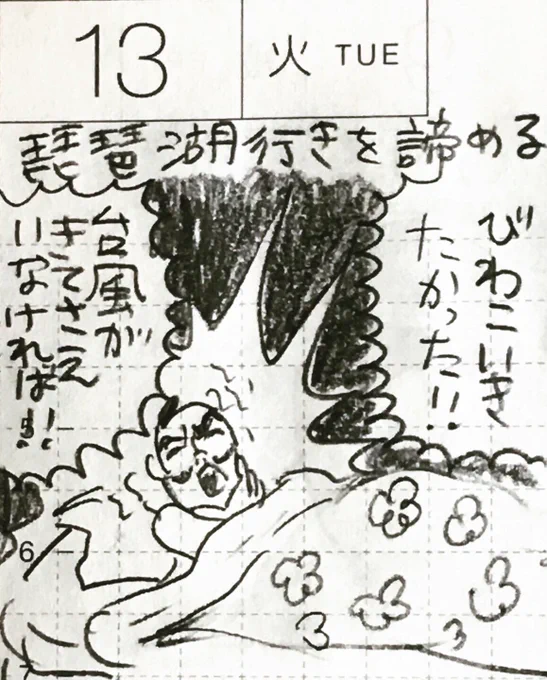 13
火 TUE
琵琶湖行きを諦める
びわこいき
たかった!!
台風が
きてさえ
いなければ!!
6